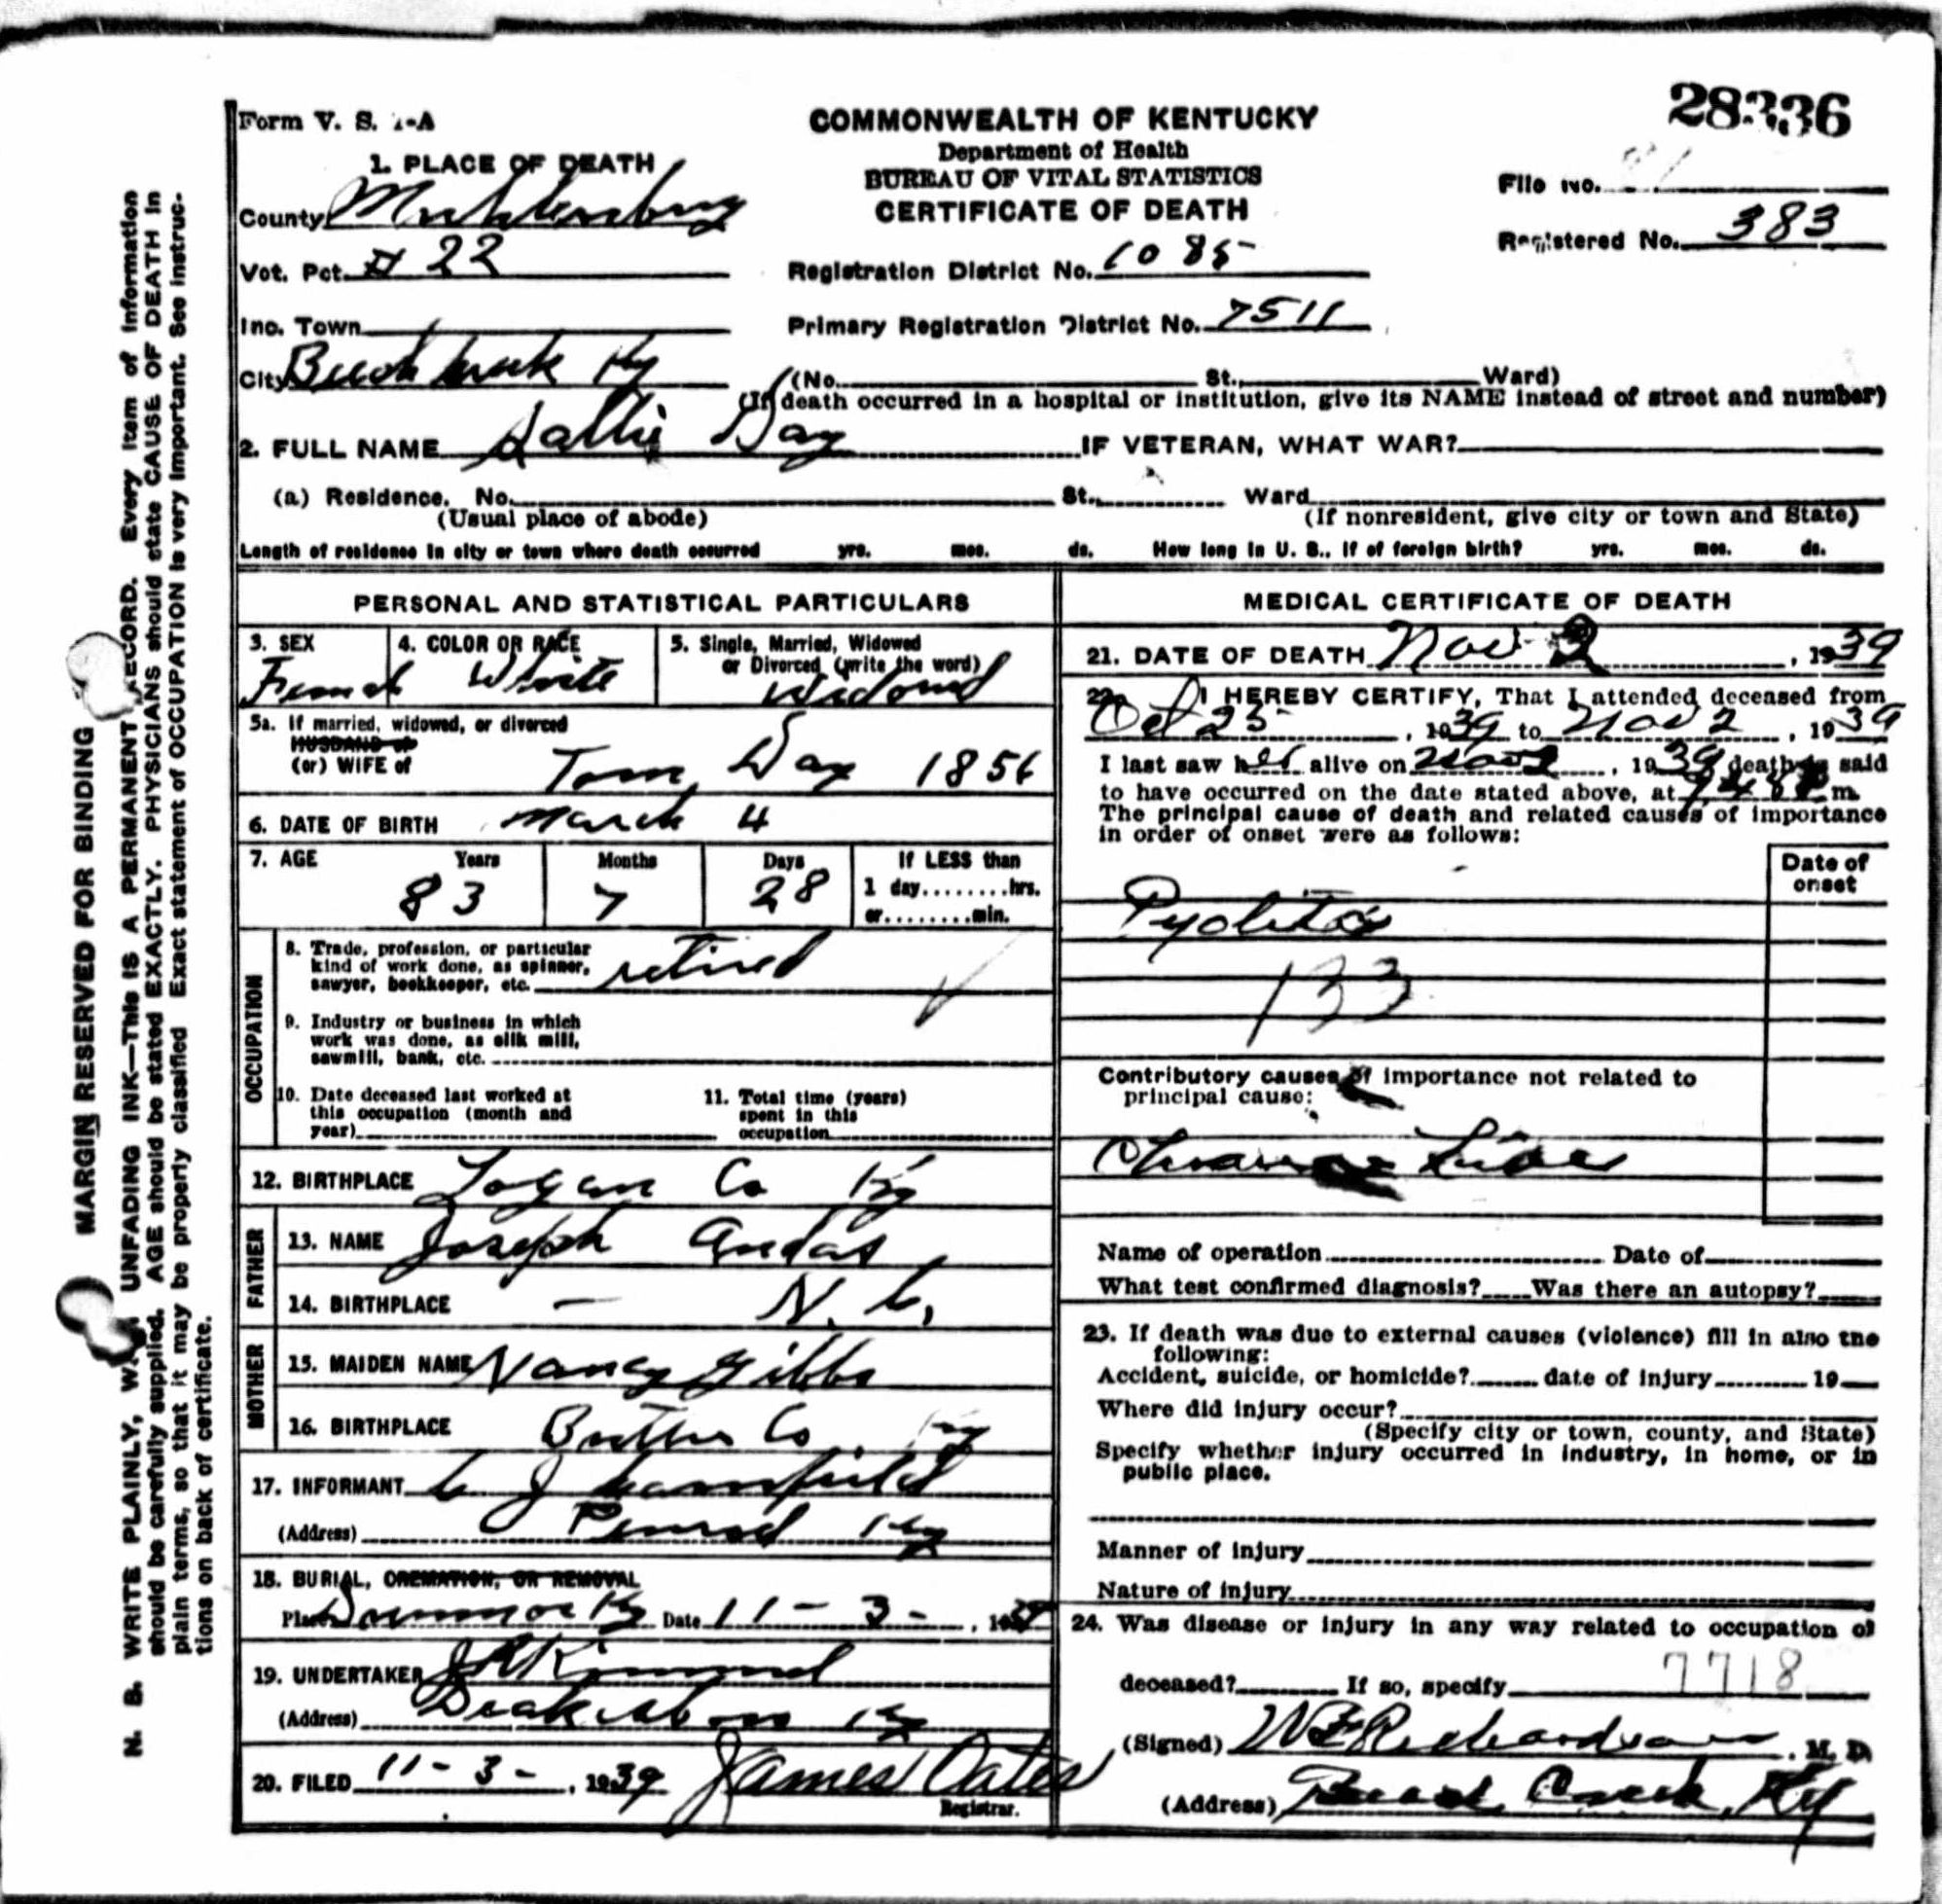 28336
Form V. S. 1-A
COMMONWEALTH OF KENTUCKY
Department of Health
BUREAU OF VITAL STATISTICS
CERTIFICATE OF DEATH
File No.
Registered No. 383
1. PLACE OF DEATH
County Muhlenburg
Vot. Pct. # 22
Registration District No. 1085
Inc. Town
Primary Registration District No. 7511
City Beech Creek Ky
(No. St., Ward)
(If death occurred in a hospital or institution, give its NAME instead of street and number)
2. FULL NAME Sallie Day IF VETERAN, WHAT WAR?
(a) Residence. No. St., Ward
(Usual place of abode) (If nonresident, give city or town and State)
Length of residence in city or town where death occurred yrs. mos. ds. How long in U. S., if of foreign birth? yrs. mos. ds.
PERSONAL AND STATISTICAL PARTICULARS
3. SEX 4. COLOR OR RACE 5. Single, Married, Widowed
or Divorced (write the word)
Femal White Widowed
5a. If married, widowed, or divorced
HUSBAND of
(or) WIFE of Tom Day 1856
6. DATE OF BIRTH March 4
7. AGE Years Months Days If LESS than
83 7 28 1 day........hrs.
or........min.
OCCUPATION
8. Trade, profession, or particular
kind of work done, as spinner,
sawyer, bookkeeper, etc. retired
9. Industry or business in which
work was done, as silk mill,
sawmill, bank, etc.
10. Date deceased last worked at
this occupation (month and
year)
11. Total time (years)
spent in this
occupation
12. BIRTHPLACE Logan Co Ky
FATHER
13. NAME Joseph
14. BIRTHPLACE — N. C.
MOTHER
15. MAIDEN NAME Nancy Gibbs
16. BIRTHPLACE Butler Co. Ky
17. INFORMANT C J
(Address) Penrod Ky
18. BURIAL, CREMATION, OR REMOVAL
Place Dunmor Ky Date 11 - 3 - , 1939
19. UNDERTAKER J R Kimmel
(Address) Ky
20. FILED 11 - 3 - , 1939 James Oates
Registrar.
MEDICAL CERTIFICATE OF DEATH
21. DATE OF DEATH Nov 2, 1939
22. I HEREBY CERTIFY, That I attended deceased from
Oct 25, 1939 to Nov 2, 1939
I last saw her alive on Nov 2, 1939 death is said
to have occurred on the date stated above, at m.
The principal cause of death and related causes of importance
in order of onset were as follows:
Date of
onset
Pyelitis
133
Contributory causes of importance not related to
principal cause:
Name of operation Date of
What test confirmed diagnosis? Was there an autopsy?
23. If death was due to external causes (violence) fill in also the
following:
Accident, suicide, or homicide? date of injury 19
Where did injury occur?
(Specify city or town, county, and State)
Specify whether injury occurred in industry, in home, or in
public place.
Manner of injury
Nature of injury
24. Was disease or injury in any way related to occupation of
7718
deceased? If so, specify
(Signed) W E Richardson M. D.
(Address) Beech Creek, Ky
MARGIN RESERVED FOR BINDING
N. B. WRITE PLAINLY, WITH UNFADING INK—This IS A PERMANENT RECORD. Every item of information
should be carefully supplied. AGE should be stated EXACTLY. PHYSICIANS should state CAUSE OF DEATH in
plain terms, so that it may be properly classified Exact statement of OCCUPATION is very important. See instruc-
tions on back of certificate.